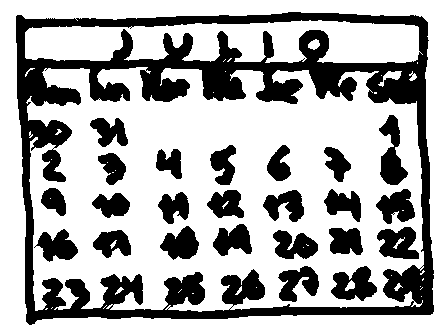 JULIO
Dom Lun Mar Mie Jue Vie Sab
30 31 1
2 3 4 5 6 7 8
9 10 11 12 13 14 15
16 17 18 19 20 21 22
23 24 25 26 27 28 29